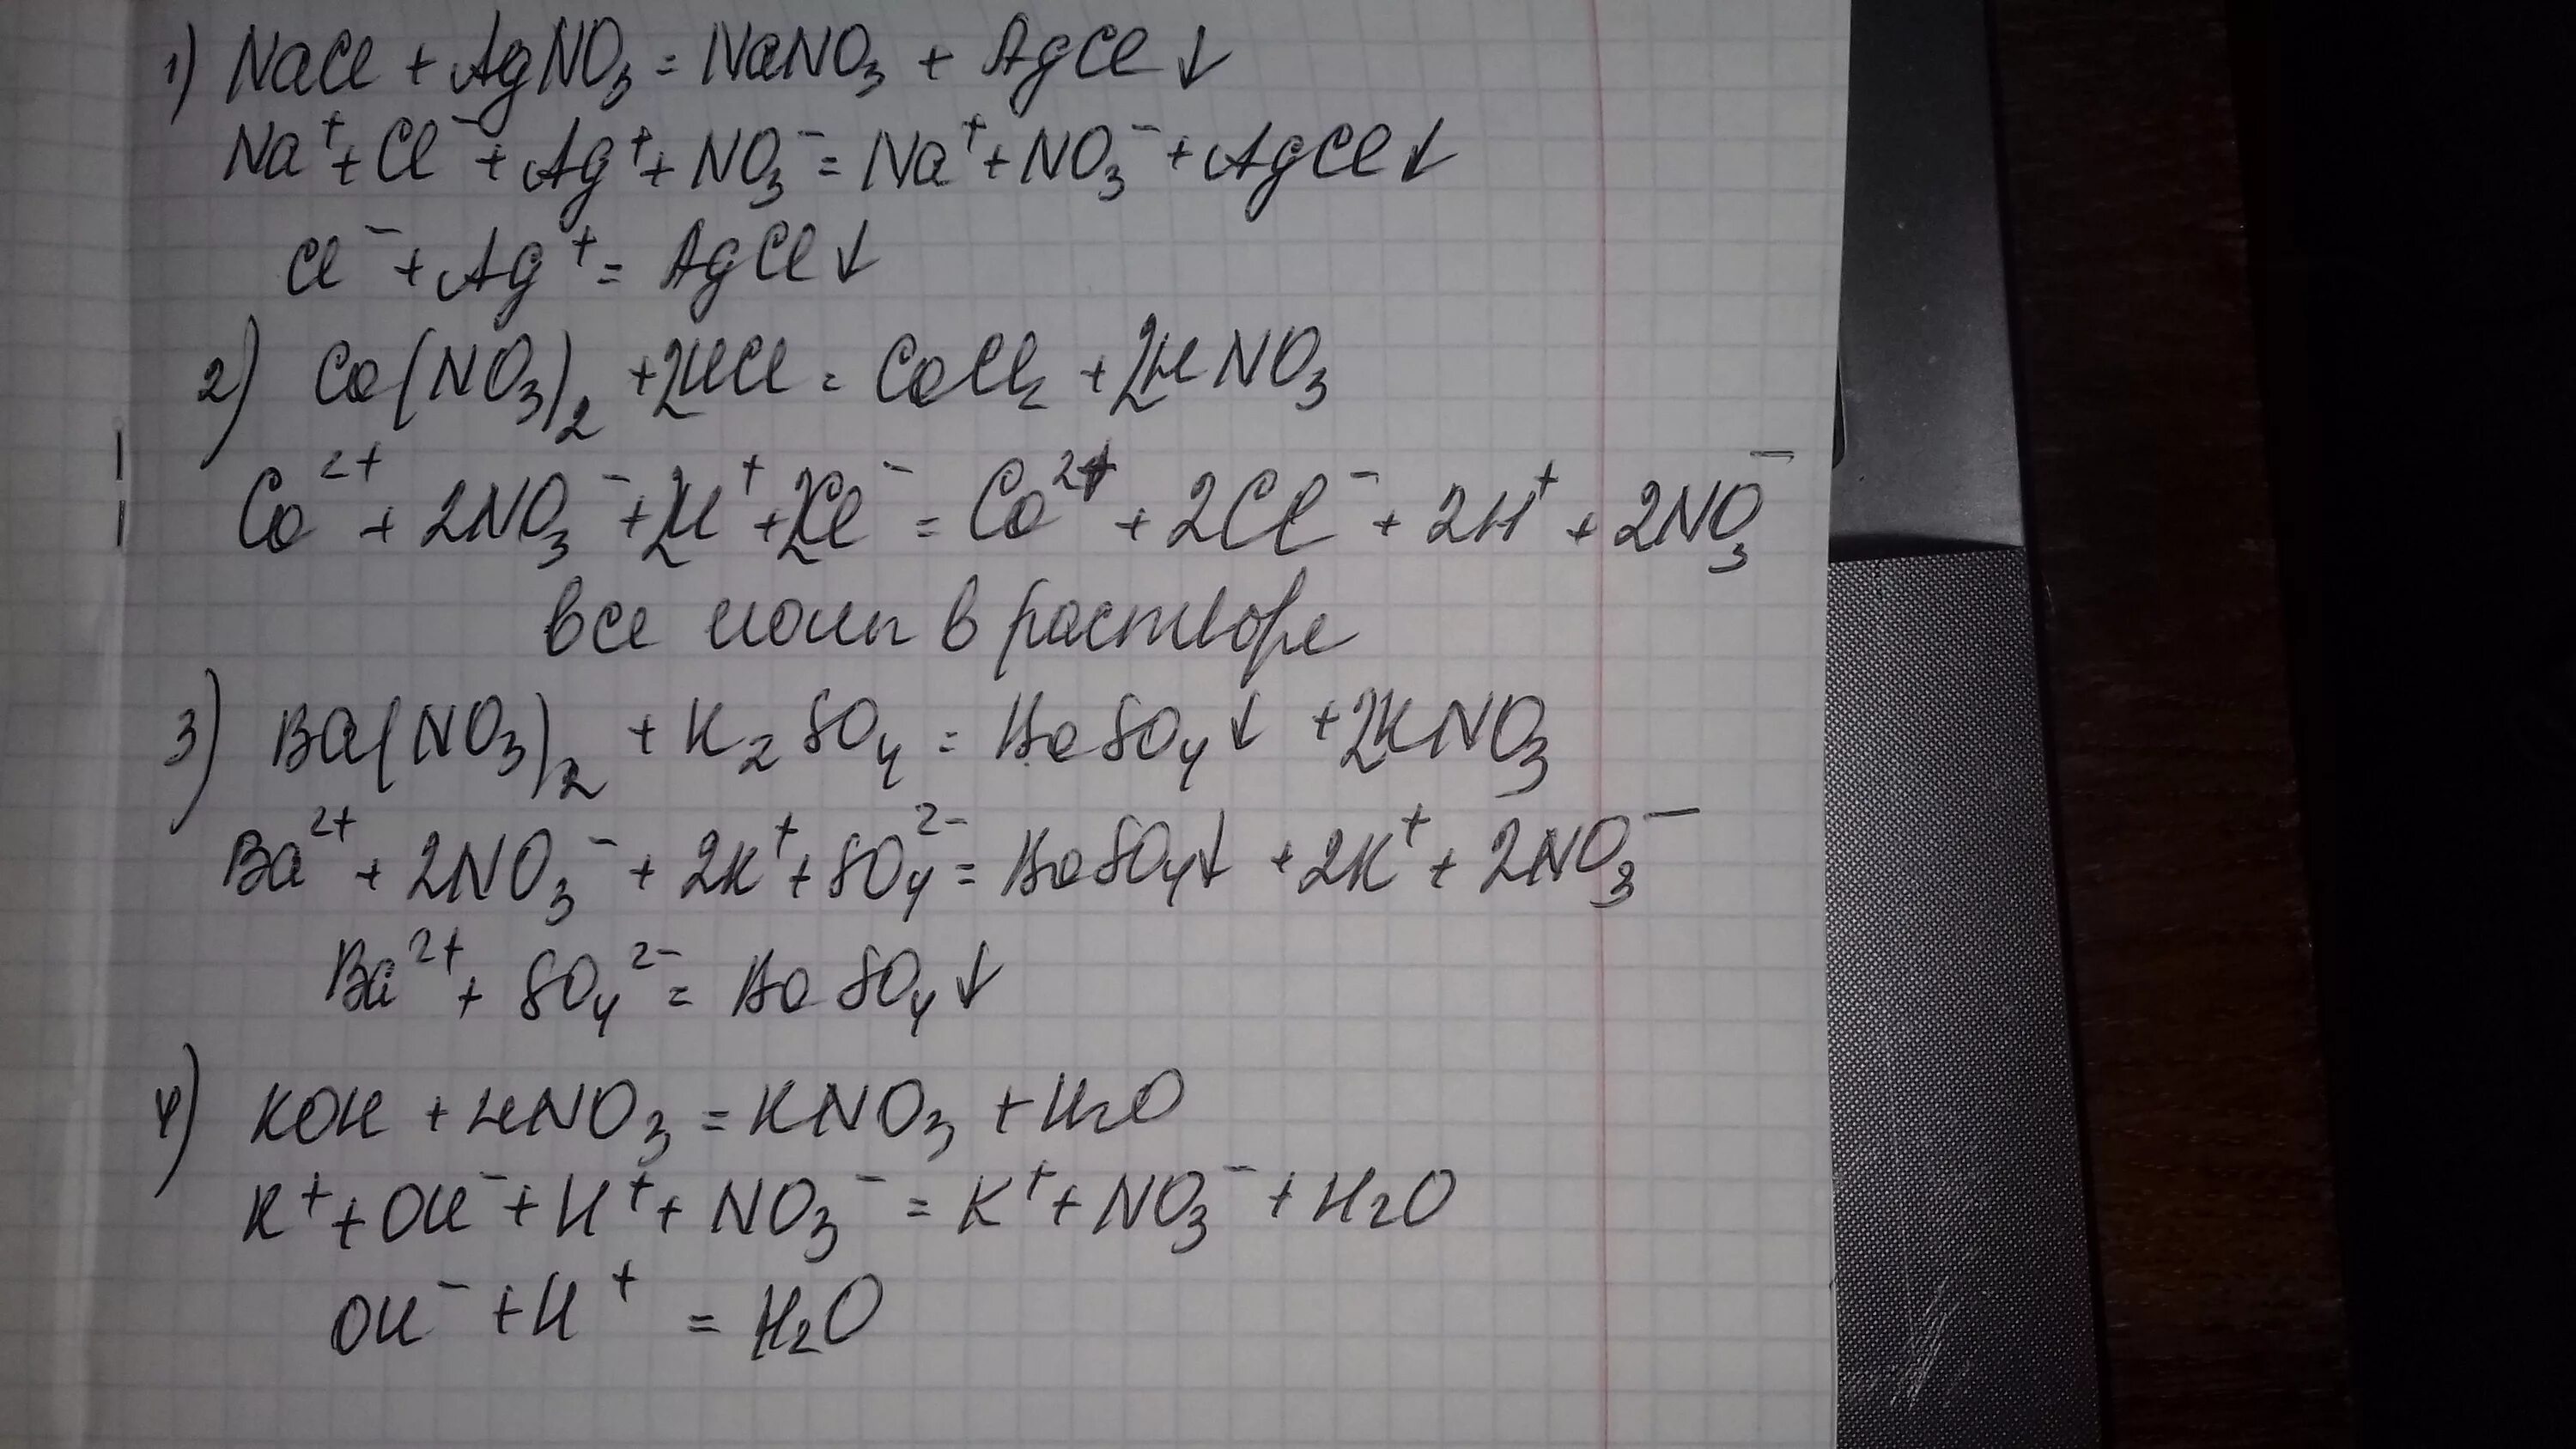 1) NaCl + AgNO₃ = NaNO₃ + AgCl ↓
Na⁺ + Cl⁻ + Ag⁺ + NO₃⁻ = Na⁺ + NO₃⁻ + AgCl ↓
Cl⁻ + Ag⁺ = AgCl ↓
2) Co(NO₃)₂ + 2HCl = CoCl₂ + 2HNO₃
Co²⁺ + 2NO₃⁻ + 2H⁺ + 2Cl⁻ = Co²⁺ + 2Cl⁻ + 2H⁺ + 2NO₃⁻
все ионы в растворе
3) Ba(NO₃)₂ + K₂SO₄ = BaSO₄ ↓ + 2KNO₃
Ba²⁺ + 2NO₃⁻ + 2K⁺ + SO₄²⁻ = BaSO₄ ↓ + 2K⁺ + 2NO₃⁻
Ba²⁺ + SO₄²⁻ = BaSO₄ ↓
4) KOH + HNO₃ = KNO₃ + H₂O
K⁺ + OH⁻ + H⁺ + NO₃⁻ = K⁺ + NO₃⁻ + H₂O
OH⁻ + H⁺ = H₂O